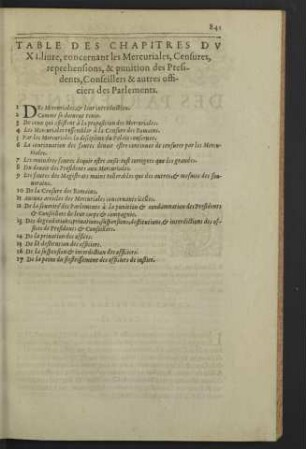 841
TABLE DES CHAPITRES DV
XI. liure, concernant les Mercuriales, Censures,
reprehensions, & punition des Presi-
dents, Conseillers & autres offi-
ciers des Parlements.
1 DEs Mercuriales & leur introduction.
2 Comme se doiuent tenir.
3 De ceux qui assistent à la proposition des Mercuriales.
4 Les Mercuriales ressemblent à la Censure des Romains.
5 Par les Mercuriales la discipline du Palais conseruee.
6 La continuation des fautes donne estre continuee de censure par les Mercu-
riales.
7 Les moindres fautes du palais estre aussi tost corrigees que les grandes.
8 Du deuoir des Presidents aux Mercuriales.
9 Les fautes des Magistrats moins tolerables que des autres, & mesmes des sou-
uerains.
10 De la Censure des Romains.
11 Aucuns articles des Mercuriales concernants
12 De la seuerité des Parlements à la punition & condamnation des Presidents
& Conseillers de leur corps & compagnie.
13 Des degradations, priuations, suspensions, destitutions & interdiction des of-
fices de Presidents & Conseillers.
14 De la priuation des offices.
15 De la destitution des officiers.
16 De la suspension & interdiction des officiers.
17 De la peine du des officiers de iustice.